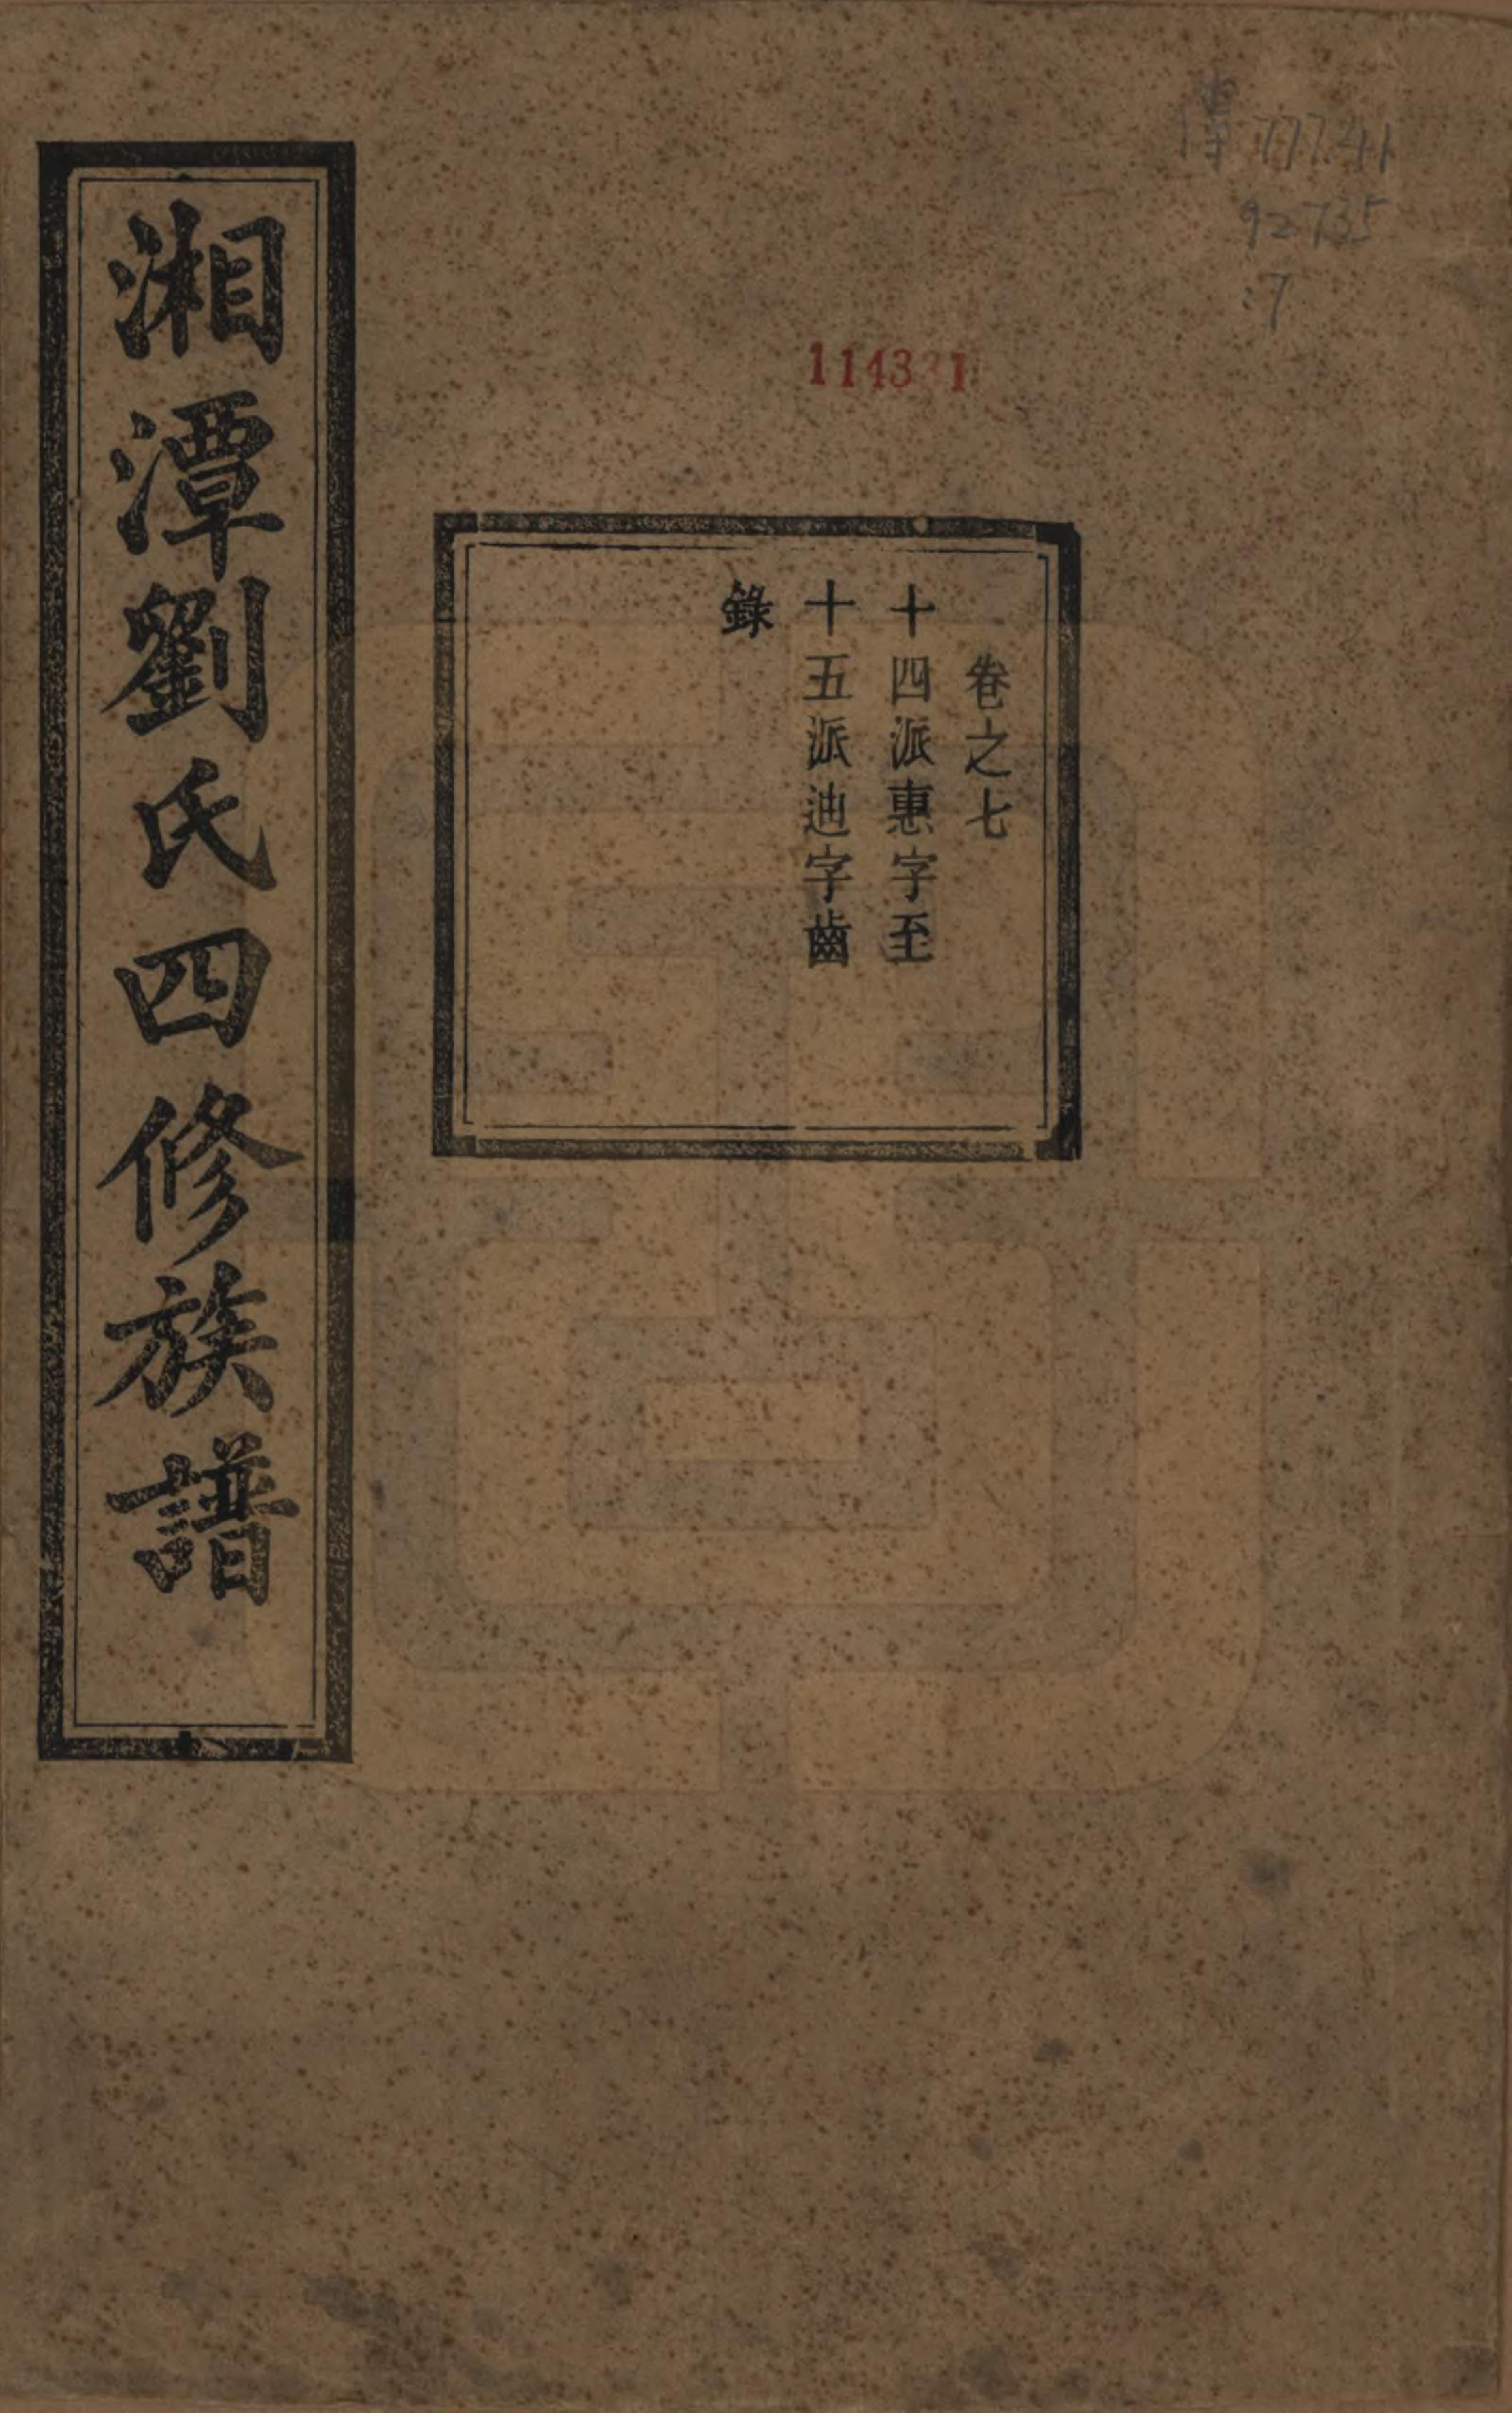 湘潭劉氏四修族譜
卷之七
十四派惠字至
十五派迪字齒
錄
92735
:7